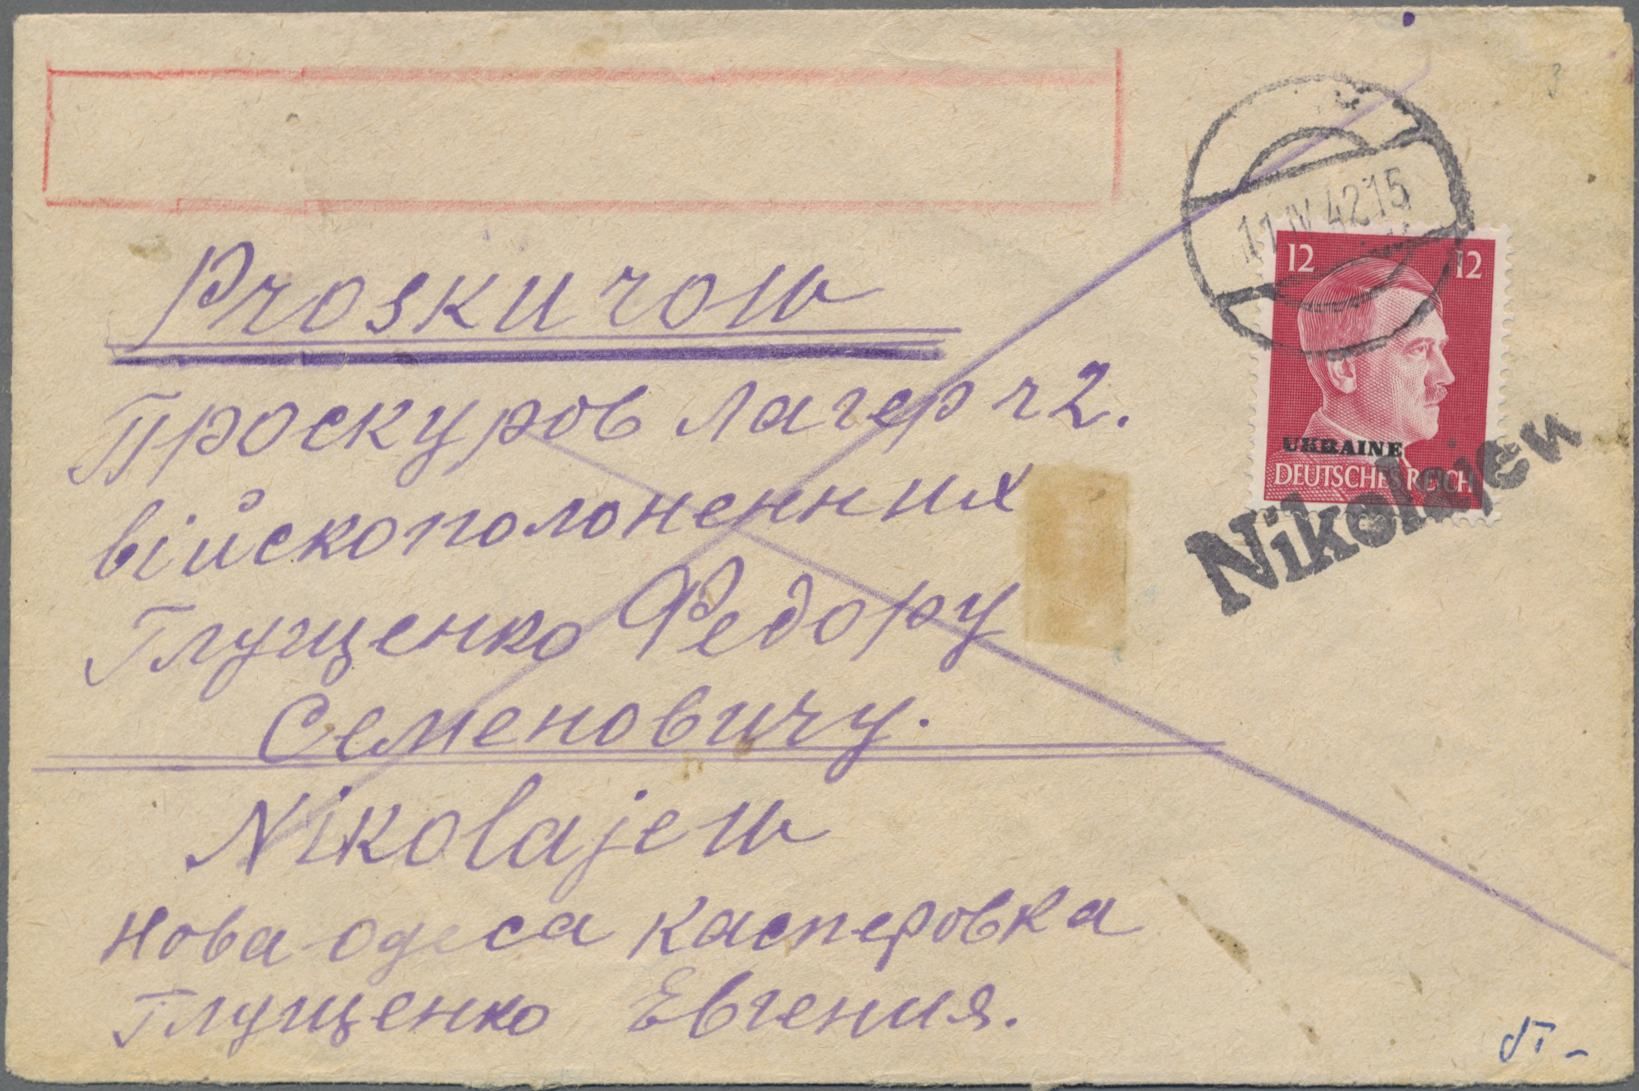 11.IV.42 15
12 12
UKRAINE
DEUTSCHES REICH
Nikolajew
Proskurow
Проскуров Лагер ч2.
військополоненних
Глущенко Федору
Семеновичу.
Nikolajew
Нова Одеса Касперовка
Глущенко Евгения.